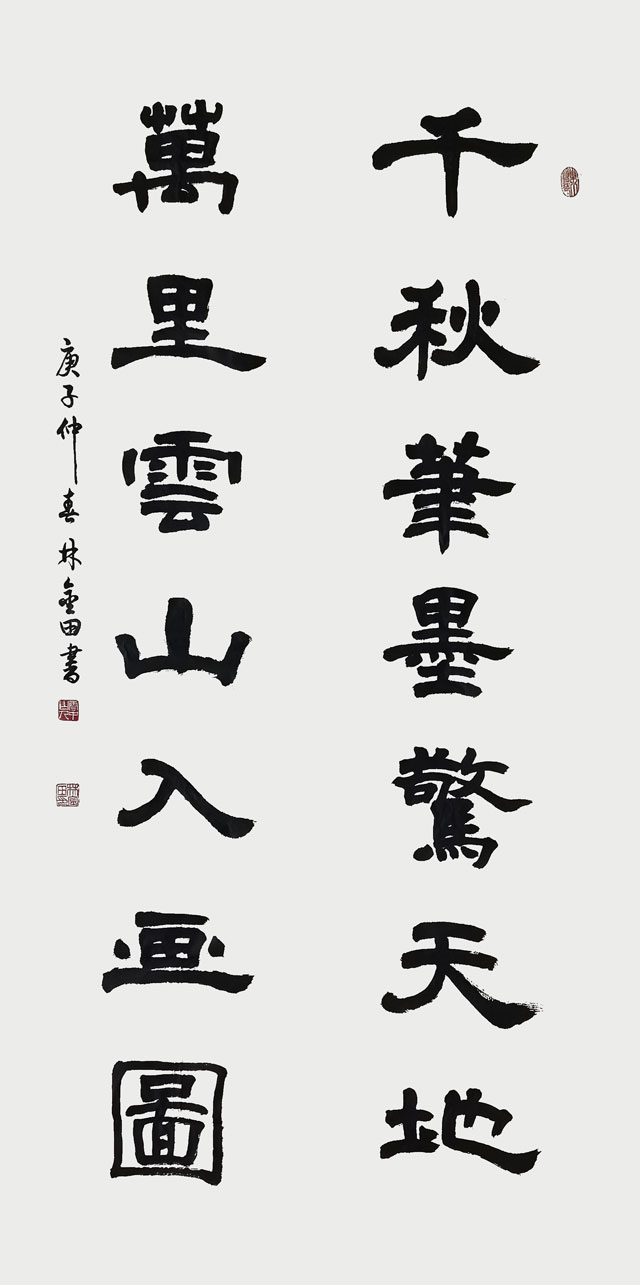 千秋筆墨驚天地
萬里雲山入画圖
庚子仲春林金田書